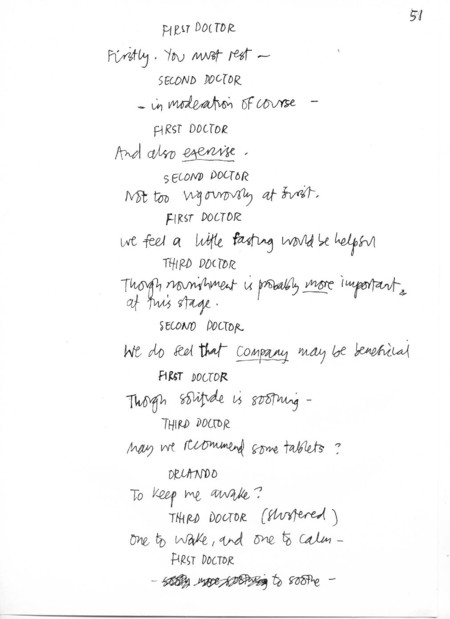 51
FIRST DOCTOR
Firstly. You must rest –
SECOND DOCTOR
– in moderation of course –
FIRST DOCTOR
And also exercise.
SECOND DOCTOR
Not too vigorously at first.
FIRST DOCTOR
We feel a little fasting would be helpful
THIRD DOCTOR
Though nourishment is probably more important
at this stage.
SECOND DOCTOR
We do feel that company may be beneficial
FIRST DOCTOR
Though solitude is soothing –
THIRD DOCTOR
May we recommend some tablets?
ORLANDO
To keep me awake?
THIRD DOCTOR (flustered)
One to wake, and one to calm –
FIRST DOCTOR
– to soothe –